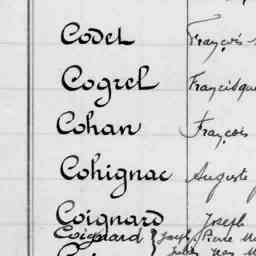 Codet François
Cogrel Francisque
Cohan François
Cohignac Auguste
Coignard Joseph
Coignard Joseph Pierre